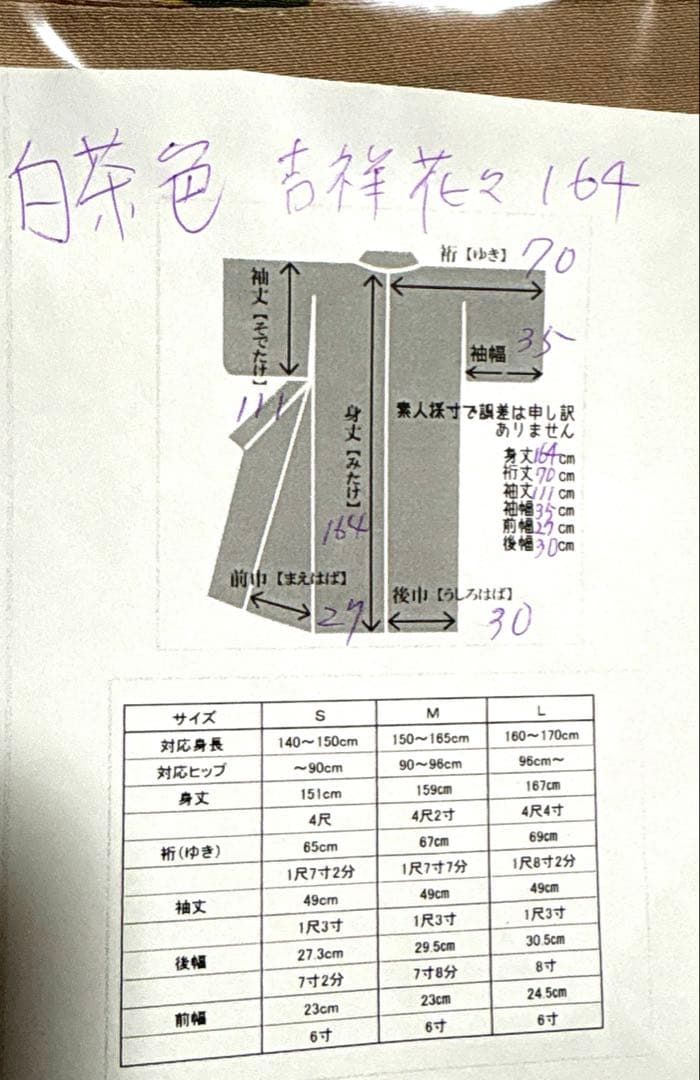 白茶色 吉祥花々 164
裄【ゆき】 70
袖丈【そでたけ】
111
袖幅 35
身丈【みたけ】
164
素人採寸で誤差は申し訳
ありません
身丈164cm
裄丈70cm
袖丈111cm
袖幅35cm
前幅27cm
後幅30cm
前巾【まえはば】
27
後巾【うしろはば】
30
サイズ S M L
対応身長 140～150cm 150～165cm 160～170cm
対応ヒップ ～90cm 90～96cm 96cm～
身丈 151cm 159cm 167cm
4尺 4尺2寸 4尺4寸
裄(ゆき) 65cm 67cm 69cm
1尺7寸2分 1尺7寸7分 1尺8寸2分
袖丈 49cm 49cm 49cm
1尺3寸 1尺3寸 1尺3寸
後幅 27.3cm 29.5cm 30.5cm
7寸2分 7寸8分 8寸
前幅 23cm 23cm 24.5cm
6寸 6寸 6寸